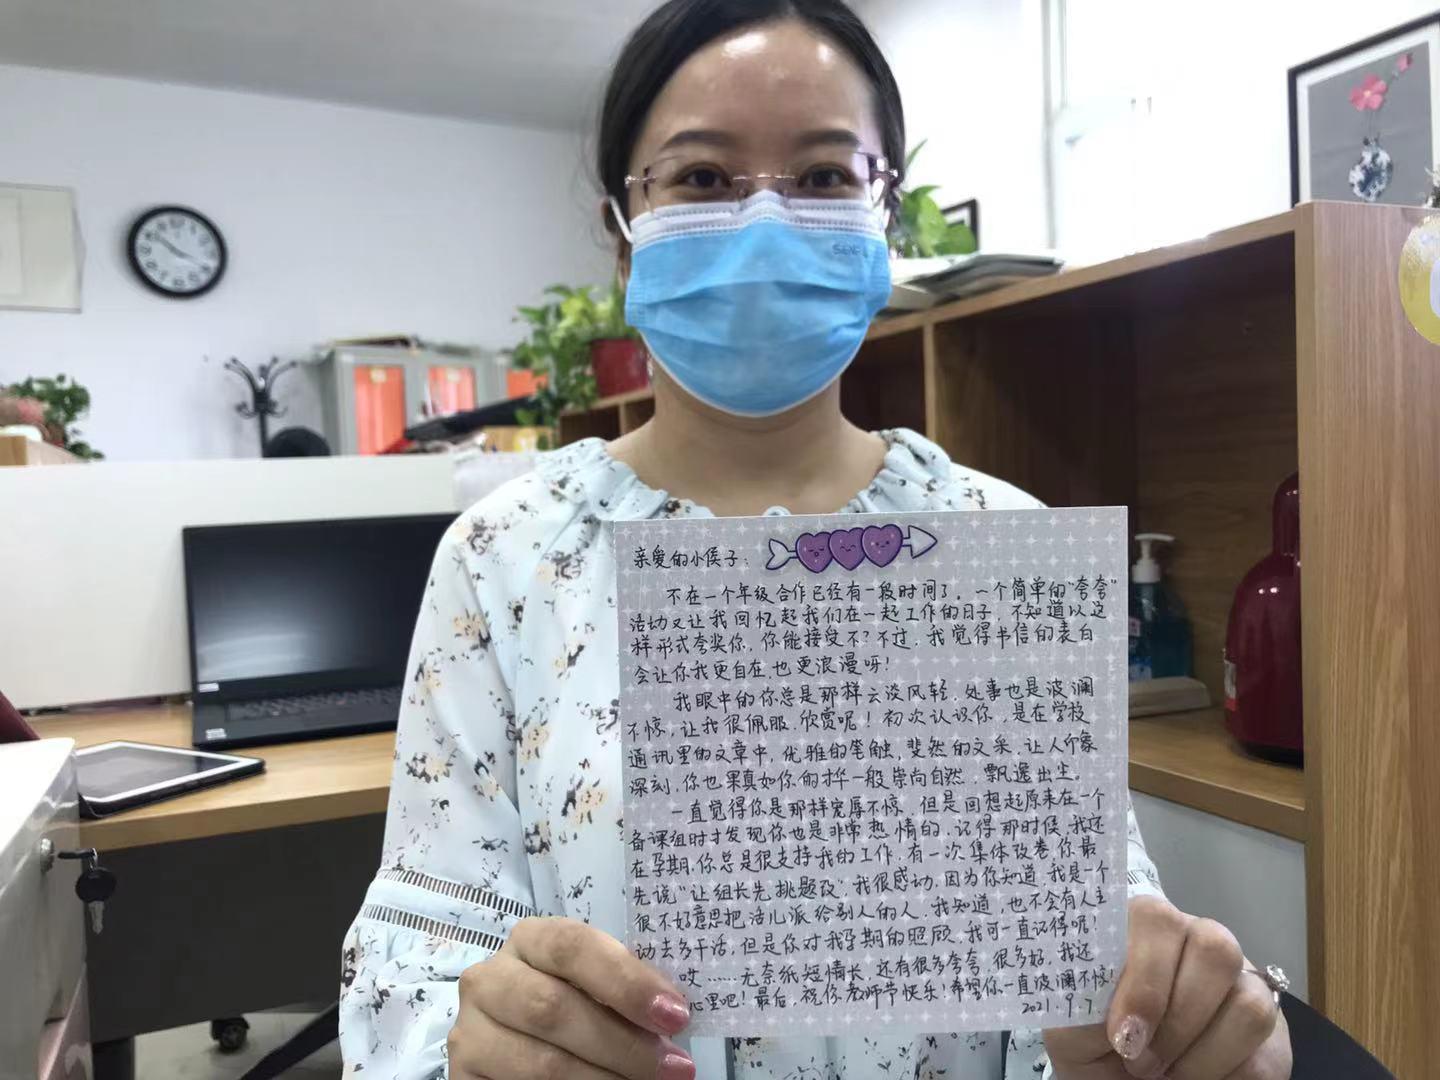 亲爱的小侯子：
不在一个年级合作已经有一段时间了，一个简单的"夸夸"
活动又让我回忆起我们在一起工作的日子，不知道以这
样形式夸奖你，你能接受不？不过，我觉得书信的表白
会让你我更自在，也更浪漫呀！
我眼中的你总是那样云淡风轻，处事也是波澜
不惊，让我很佩服、欣赏呢！初次认识你，是在学校
通讯里的文章中，优雅的笔触，斐然的文采，让人印象
深刻，你也果真如你的才华一般崇尚自然，飘逸出尘。
一直觉得你是那样宠辱不惊，但是回想起原来在一个
备课组时才发现你也是非常热情的，记得那时候，我还
在孕期，你总是很支持我的工作，有一次集体改卷，你最
先说"让组长先挑题改"，我很感动，因为你知道，我是一个
很不好意思把活儿派给别人的人，我知道，也不会有人主
动去多干活，但是你对我孕期的照顾，我可一直记得呢！
哎……无奈纸短情长，还有很多夸夸，很多好，我还
心里吧！最后，祝你教师节快乐！希望你一直波澜不惊！
2021.9.7.